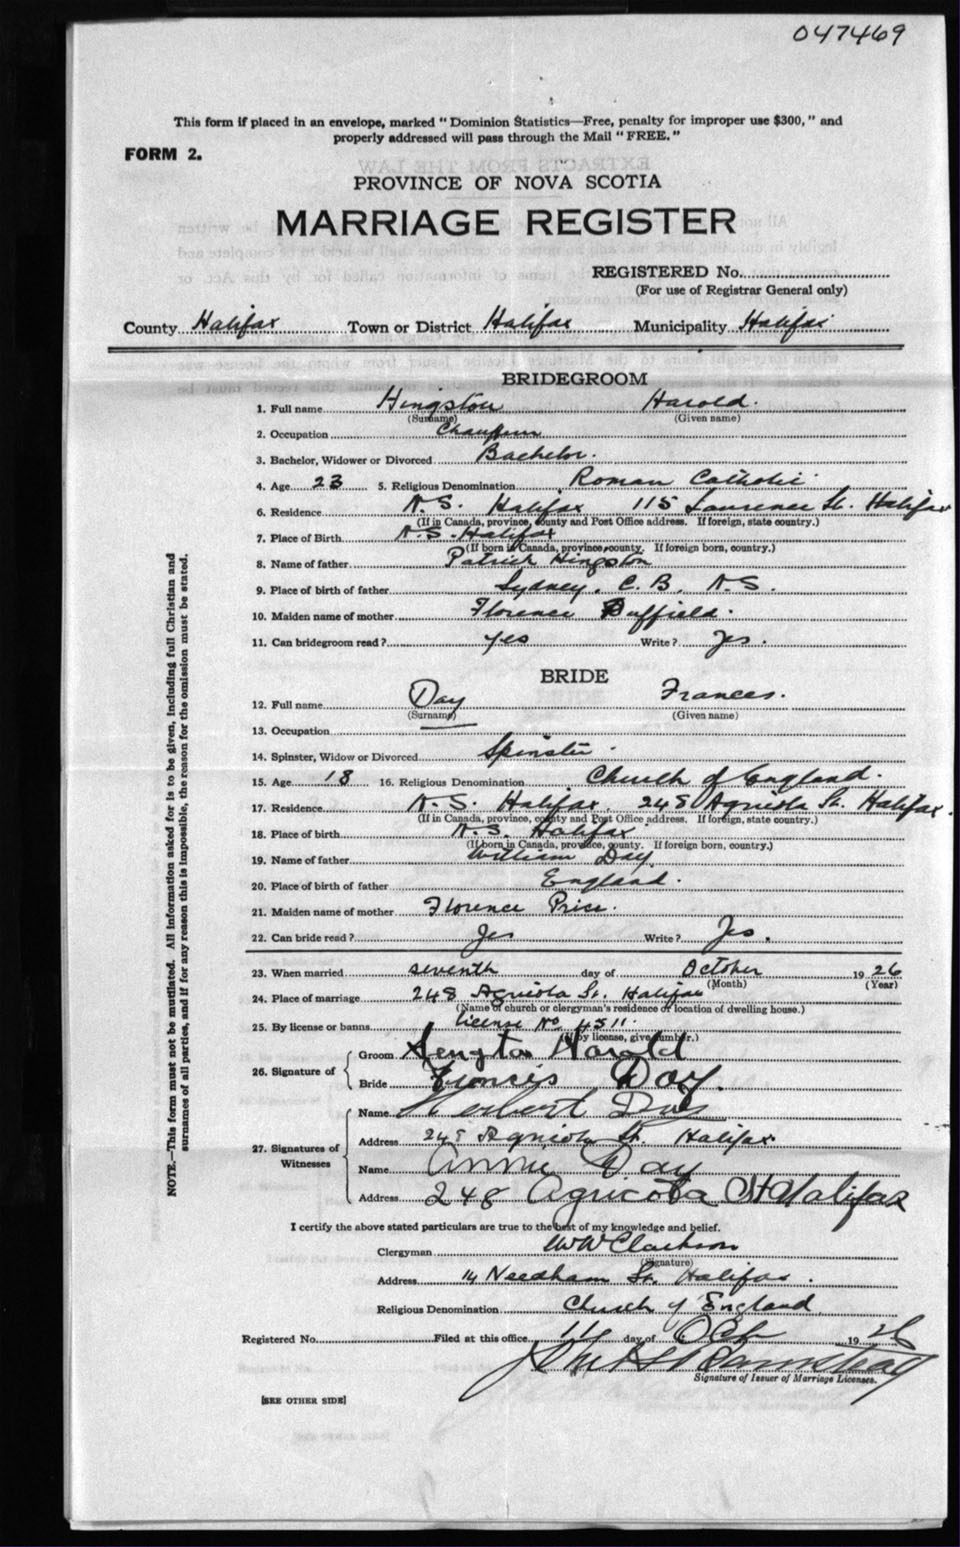 047469
This form if placed in an envelope, marked " Dominion Statistics—Free, penalty for improper use $300, " and
properly addressed will pass through the Mail " FREE. "
FORM 2.
PROVINCE OF NOVA SCOTIA
MARRIAGE REGISTER
REGISTERED No.
(For use of Registrar General only)
County Halifax Town or District Halifax Municipality Halifax
BRIDEGROOM
1. Full name Hingston Harold.
(Surname) (Given name)
2. Occupation Chauffeur
3. Bachelor, Widower or Divorced Bachelor.
4. Age 23 5. Religious Denomination Roman Catholic
6. Residence N. S. Halifax 115 Lawrence St. Halifax
(If in Canada, province, county and Post Office address. If foreign, state country.)
7. Place of Birth N. S. Halifax
(If born in Canada, province, county, If foreign born, country.)
8. Name of father Patrick Hingston
9. Place of birth of father Sydney, C. B. N. S.
10. Maiden name of mother Florence Duffield.
11. Can bridegroom read? yes Write? Yes.
BRIDE
12. Full name Day Frances.
(Surname) (Given name)
13. Occupation
14. Spinster, Widow or Divorced Spinster.
15. Age 18 16. Religious Denomination Church of England.
17. Residence N. S. Halifax, 248 Agricola St. Halifax.
(If in Canada, province, county and Post Office address. If foreign, state country.)
18. Place of birth N. S. Halifax
(If born in Canada, province, county. If foreign born, country.)
19. Name of father William Day
20. Place of birth of father England.
21. Maiden name of mother Florence Price.
22. Can bride read? Yes Write? Yes.
23. When married seventh day of October 1926
(Month) (Year)
24. Place of marriage 248 Agricola St. Halifax
(Name of church or clergyman's residence or location of dwelling house.)
25. By license or banns License No. 4511.
(If by license, give number.)
26. Signature of Groom Harold
Bride Francis Day.
27. Signatures of Witnesses Name Herbert Day
Address 248 Agricola St. Halifax
Name Annie Day
Address 248 Agricola St Halifax
I certify the above stated particulars are true to the best of my knowledge and belief.
Clergyman WW Clarkson
(Signature)
Address 14 Needham St. Halifax.
Religious Denomination Church of England
Registered No. Filed at this office day of Oct 1926
Signature of Issuer of Marriage Licenses.
[SEE OTHER SIDE]
NOTE.—This form must not be mutilated. All information asked for is to be given, including full Christian and
surnames of all parties, and if for any reason this is impossible, the reason for the omission must be stated.